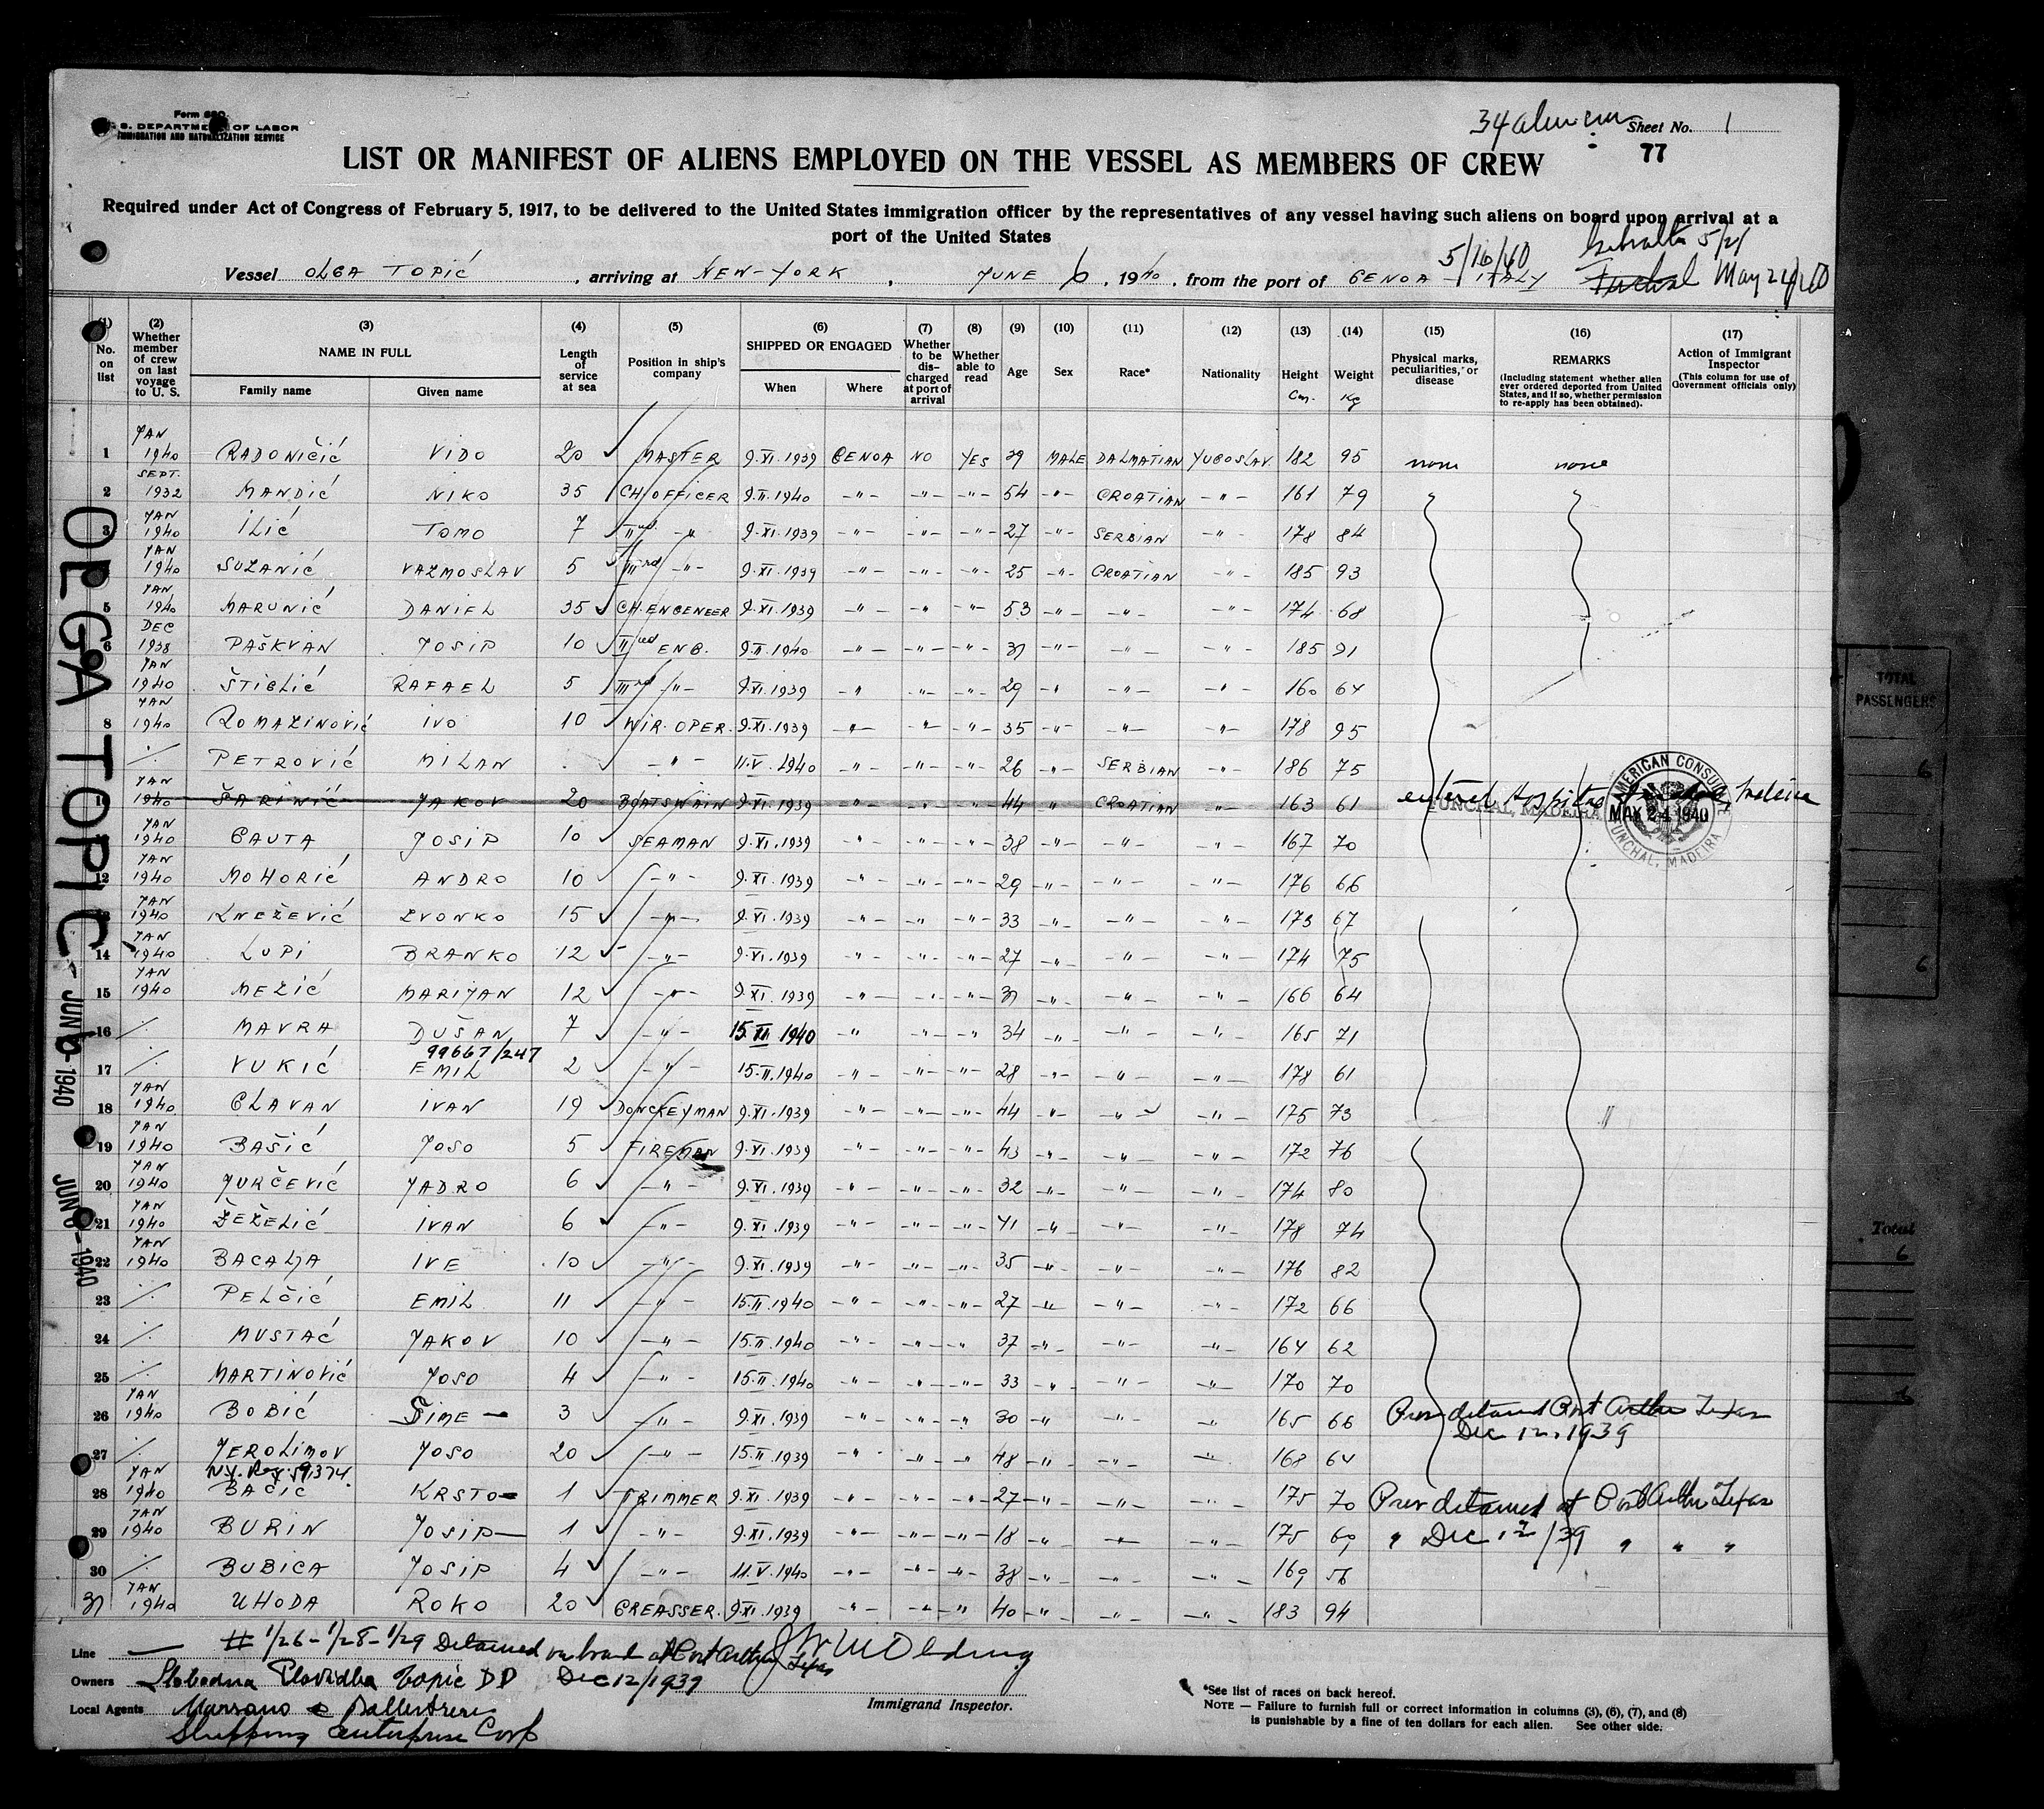 Form 680
U. S. DEPARTMENT OF LABOR
IMMIGRATION AND NATURALIZATION SERVICE
34 alien crew Sheet No. 1
77
LIST OR MANIFEST OF ALIENS EMPLOYED ON THE VESSEL AS MEMBERS OF CREW
Required under Act of Congress of February 5, 1917, to be delivered to the United States immigration officer by the representatives of any vessel having such aliens on board upon arrival at a
port of the United States
5/16/40 Gibraltar 5/21
Vessel OLGA TOPIĆ, arriving at NEW-YORK, JUNE 6, 1940, from the port of GENOA - ITALY Funchal May 24/40
(1) No. on list (2) Whether member of crew on last voyage to U. S. (3) NAME IN FULL Family name Given name (4) Length of service at sea (5) Position in ship's company (6) SHIPPED OR ENGAGED When Where (7) Whether to be discharged at port of arrival (8) Whether able to read (9) Age (10) Sex (11) Race* (12) Nationality (13) Height Cm. (14) Weight Kg (15) Physical marks, peculiarities, or disease (16) REMARKS (Including statement whether alien ever ordered deported from United States, and if so, whether permission to re-apply has been obtained). (17) Action of Immigrant Inspector (This column for use of Government officials only)
1 JAN 1940 RADONIČIĆ VIDO 20 ✓ MASTER 9.XI.1939 GENOA NO YES 39 MALE DALMATIAN YUGOSLAV. 182 95 none none
2 SEPT. 1932 MANDIĆ NIKO 35 CH/OFFICER 9.II.1940 -"- -"- -"- 54 -"- CROATIAN -"- 161 79
3 JAN 1940 ILIĆ TOMO 7 ✓ IInd -"- 9.XI.1939 -"- -"- -"- 27 -"- SERBIAN -"- 178 84
JAN 1940 SUZANIĆ VAZMOSLAV 5 ✓ IIIrd -"- 9.XI.1939 -"- -"- -"- 25 -"- CROATIAN -"- 185 93
5 JAN 1940 MARUNIĆ DANIEL 35 ✓ CH.ENGENEER 9.XI.1939 -"- -"- -"- 53 -"- -"- -"- 174 68
6 DEC 1938 PAŠKVAN JOSIP 10 ✓ IInd ENG. 9.II.1940 -"- -"- -"- 31 -"- -"- -"- 185 91
JAN 1940 ŠTIGLIĆ RAFAEL 5 ✓ IIIrd -"- 9.XI.1939 -"- -"- -"- 29 -"- -"- -"- 160 64
8 JAN 1940 ROMAZINOVIĆ IVO 10 ✓ WIR.OPER. 9.XI.1939 -"- -"- -"- 35 -"- -"- -"- 178 95
./. PETROVIĆ MILAN . ✓ -"- 11.V.1940 -"- -"- -"- 26 -"- SERBIAN -"- 186 75
10 JAN 1940 ŠARINIĆ JAKOV 20 BOATSWAIN 9.XI.1939 -"- -"- -"- 44 " CROATIAN -"- 163 61 entered Hospital Funchal, Madeira
FUNCHAL, MADEIRA AMERICAN CONSULATE MAY 24 1940 FUNCHAL, MADEIRA
JAN 1940 GAUTA JOSIP 10 ✓ SEAMAN 9.XI.1939 -"- -"- -"- 38 -"- -"- -"- 167 70
12 JAN 1940 MOHORIĆ ANDRO 10 ✓ -"- 9.XI.1939 -"- -"- -"- 29 -"- -"- -"- 176 66
13 JAN 1940 KNEŽEVIĆ ZVONKO 15 ✓ -"- 9.XI.1939 -"- -"- -"- 33 -"- -"- -"- 173 67
14 JAN 1940 LUPI BRANKO 12 ✓ -"- 9.XI.1939 -"- -"- -"- 27 -"- -"- -"- 174 75
15 JAN 1940 MEZIĆ MARIJAN 12 ✓ -"- 9.XI.1939 -"- -"- -"- 31 -"- -"- -"- 166 64
16 ./. MAVRA DUŠAN 7 ✓ -"- 15.II.1940 -"- -"- -"- 34 -"- -"- -"- 165 71
99667/247
17 ./. VUKIĆ EMIL 2 ✓ -"- 15.II.1940 -"- -"- -"- 28 -"- -"- -"- 178 61
18 JAN 1940 GLAVAN IVAN 19 ✓ DONCKEYMAN 9.XI.1939 -"- -"- -"- 44 -"- -"- -"- 175 73
19 JAN 1940 BAŠIĆ JOSO 5 ✓ FIREMAN 9.XI.1939 -"- -"- -"- 43 -"- -"- -"- 172 76
20 JAN 1940 JURČEVIĆ JADRO 6 ✓ -"- 9.XI.1939 -"- -"- -"- 32 -"- -"- -"- 174 80
21 JAN 1940 ŽEŽELIĆ IVAN 6 ✓ -"- 9.XI.1939 -"- -"- -"- 41 -"- -"- -"- 178 74
22 JAN 1940 BACALJA IVE 10 ✓ -"- 9.XI.1939 -"- -"- -"- 35 -"- -"- -"- 176 82
23 ./. PELČIĆ EMIL 11 ✓ -"- 15.II.1940 -"- -"- -"- 27 -"- -"- -"- 172 66
24 ./. MUSTAĆ JAKOV 10 ✓ -"- 15.II.1940 -"- -"- -"- 37 -"- -"- -"- 164 62
25 ./. MARTINOVIĆ JOSO 4 ✓ -"- 15.II.1940 -"- -"- -"- 33 -"- -"- -"- 170 70
26 JAN 1940 BOBIĆ ŠIME - 3 ✓ -"- 9.XI.1939 -"- -"- -"- 30 -"- -"- -"- 165 66 Prev detained Port Arthur Texas
Dec 12, 1939
27 ./. JEROLIMOV JOSO 20 ✓ -"- 15.II.1939 -"- -"- -"- 48 -"- -"- -"- 168 64
N.Y. Reg. 59374
28 JAN 1940 BAČIĆ KRSTO - 1 ✓ TRIMMER 9.XI.1939 -"- -"- -"- 27 -"- -"- -"- 175 70 Prev detained at Port Arthur Texas
29 JAN 1940 BURIN JOSIP - 1 ✓ -"- 9.XI.1939 -"- -"- -"- 18 -"- -"- -"- 175 69 " Dec 12/39 " " "
30 ./. BUBICA JOSIP 4 ✓ -"- 11.V.1940 -"- -"- -"- 38 -"- -"- -"- 169 56
31 JAN 1940 UHODA ROKO 20 ✓ GREASSER. 9.XI.1939 -"- -"- -"- 40 -"- -"- -"- 183 94
Line — # 1/26 - 1/28 - 1/29 Detained on board at Port Arthur Texas
Owners Slobodna Plovidba Topic DD Dec 12/1939
Local Agents Marsano e Ballestreri
Shipping Enterprise Corp
Immigrand Inspector.
*See list of races on back hereof.
NOTE — Failure to furnish full or correct information in columns (3), (6), (7), and (8)
is punishable by a fine of ten dollars for each alien. See other side.
OLGA TOPIC
JUN 6 - 1940
JUN 6 - 1940
TOTAL
PASSENGERS
6
6
Total
6